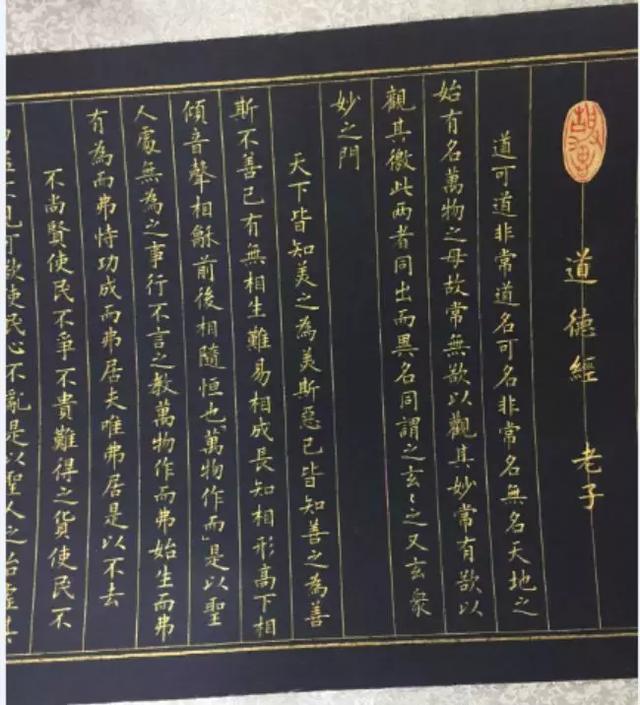 道德經 老子
道可道非常道名可名非常名無名天地之
始有名萬物之母故常無欲以觀其妙常有欲以
觀其徼此兩者同出而異名同謂之玄〻之又玄衆
妙之門
天下皆知美之為美斯惡已皆知善之為善
斯不善已有無相生難易相成長知相形高下相
傾音聲相穌前後相隨恒也「萬物作而」是以聖
人處無為之事行不言之教萬物作而弗始生而弗
有為而弗恃功成而弗居夫唯弗居是以不去
不尚賢使民不爭不貴難得之貨使民不
見可欲使民心不亂是以聖人之治